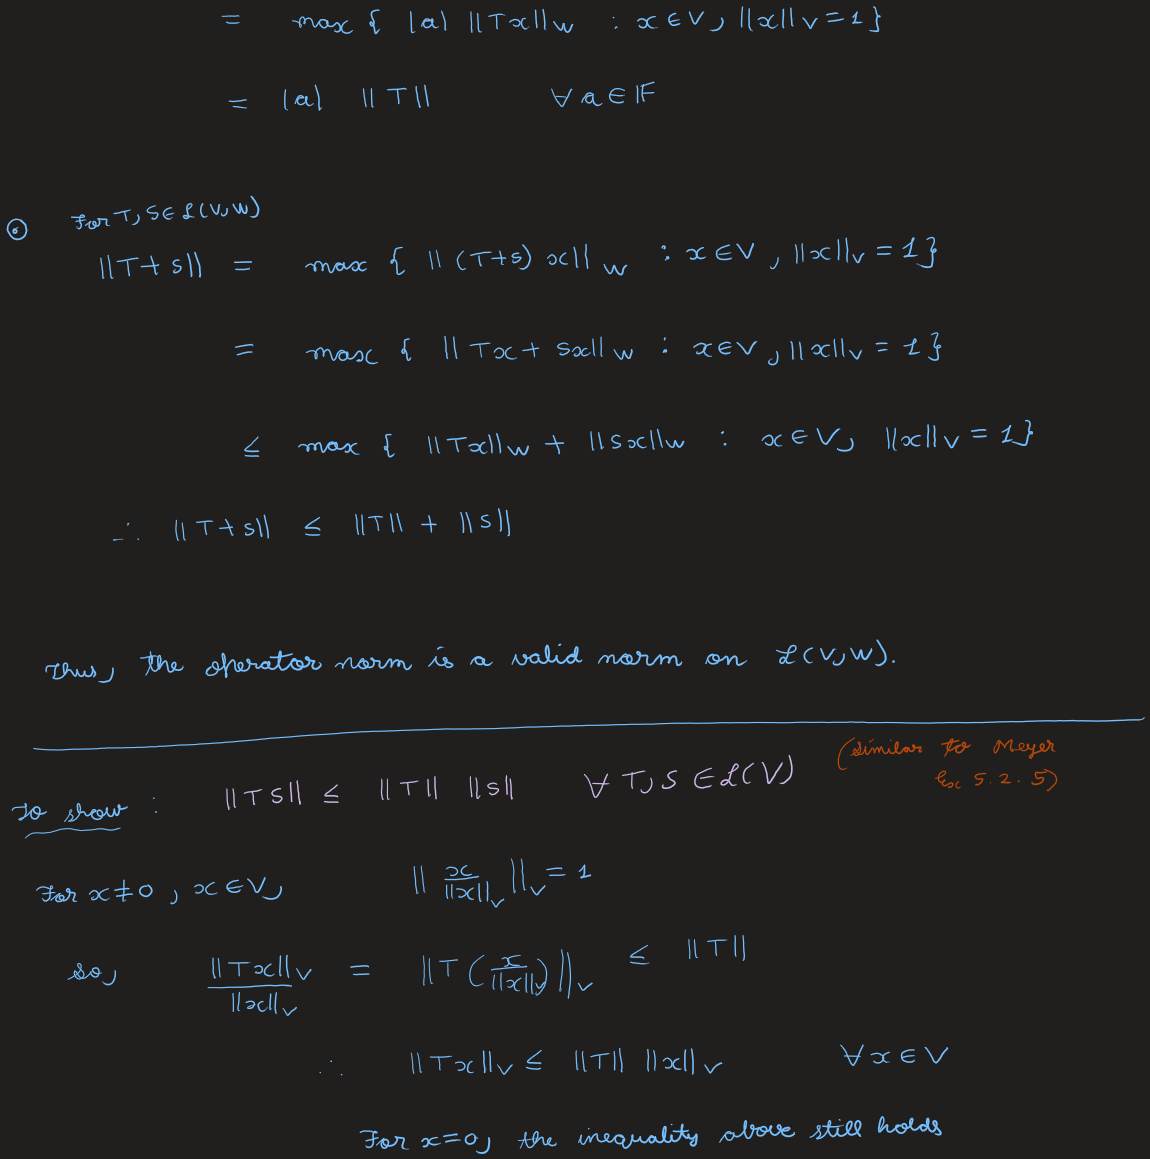 = max { |a| ||Tx||_W : x ∈ V, ||x||_V = 1 }
= |a| ||T|| ∀ a ∈ 𝔽
For T, S ∈ ℒ(V,W)
||T+S|| = max { ||(T+S)x||_W : x ∈ V, ||x||_V = 1 }
= max { ||Tx + Sx||_W : x ∈ V, ||x||_V = 1 }
≤ max { ||Tx||_W + ||Sx||_W : x ∈ V, ||x||_V = 1 }
∴ ||T+S|| ≤ ||T|| + ||S||
Thus, the operator norm is a valid norm on ℒ(V,W).
(Similar to Meyer
Exc 5.2.5)
To show : ||TS|| ≤ ||T|| ||S|| ∀ T, S ∈ ℒ(V)
For x ≠ 0, x ∈ V, || x/||x||_V ||_V = 1
So, ||Tx||_V / ||x||_V = ||T(x/||x||_V)||_V ≤ ||T||
∴ ||Tx||_V ≤ ||T|| ||x||_V ∀ x ∈ V
For x=0, the inequality above still holds